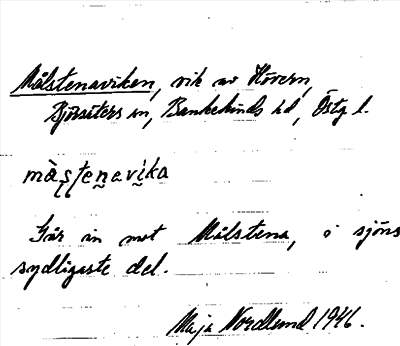 Målstenaviken, vik av Hövern,
Bjärsäters sn, Bankekinds hd, Östg l.
màstenavika
Går in mot Målstena, i sjöns
sydligaste del.
Maja Nordlund 1946.